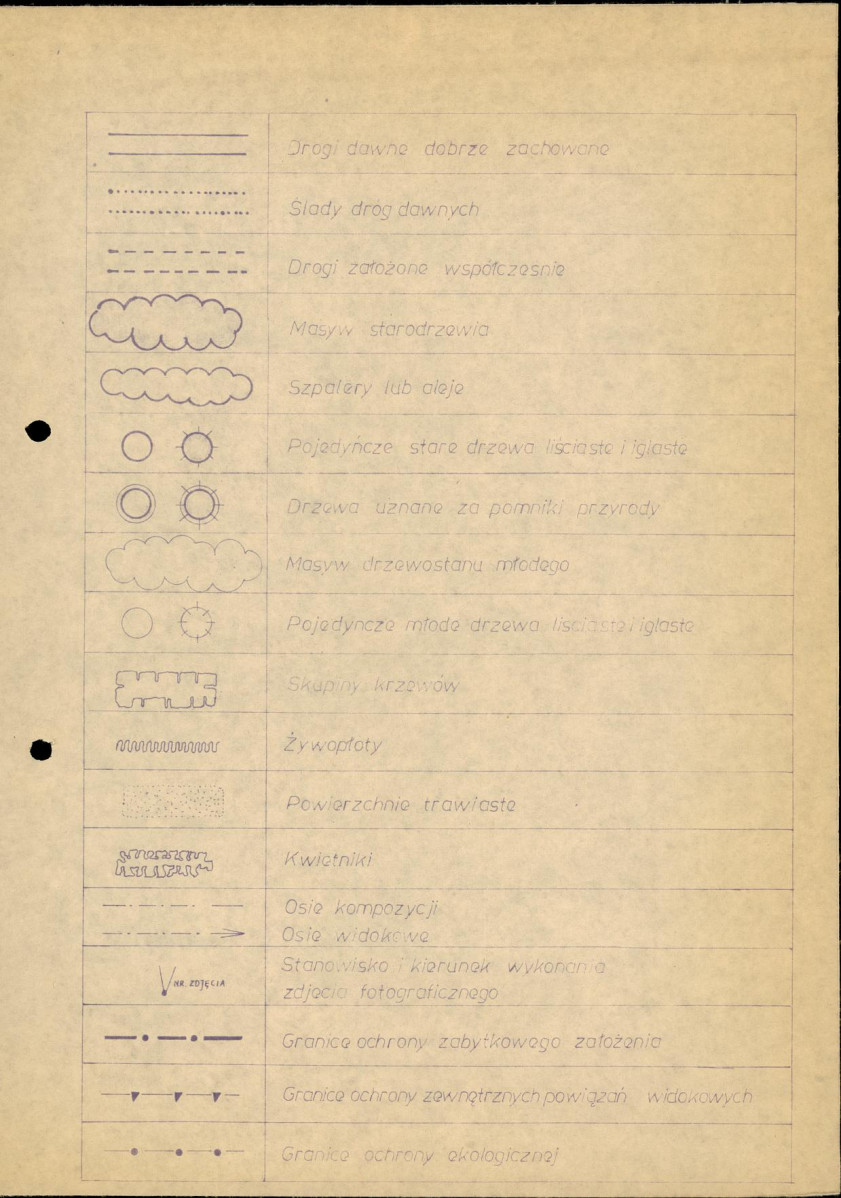 Drogi dawne dobrze zachowane
Ślady dróg dawnych
Drogi założone współcześnie
Masyw starodrzewia
Szpalery lub aleje
Pojedyńcze stare drzewa liściaste i iglaste
Drzewa uznane za pomniki przyrody
Masyw drzewostanu młodego
Pojedyncze młode drzewa liściaste i iglaste
Skupiny krzewów
Żywopłoty
Powierzchnie trawiaste
Kwietniki
Osie kompozycji
Osie widokowe
NR. ZDJĘCIA
Stanowisko i kierunek wykonania
zdjęcia fotograficznego
Granice ochrony zabytkowego założenia
Granice ochrony zewnętrznych powiązań widokowych
Granice ochrony ekologicznej